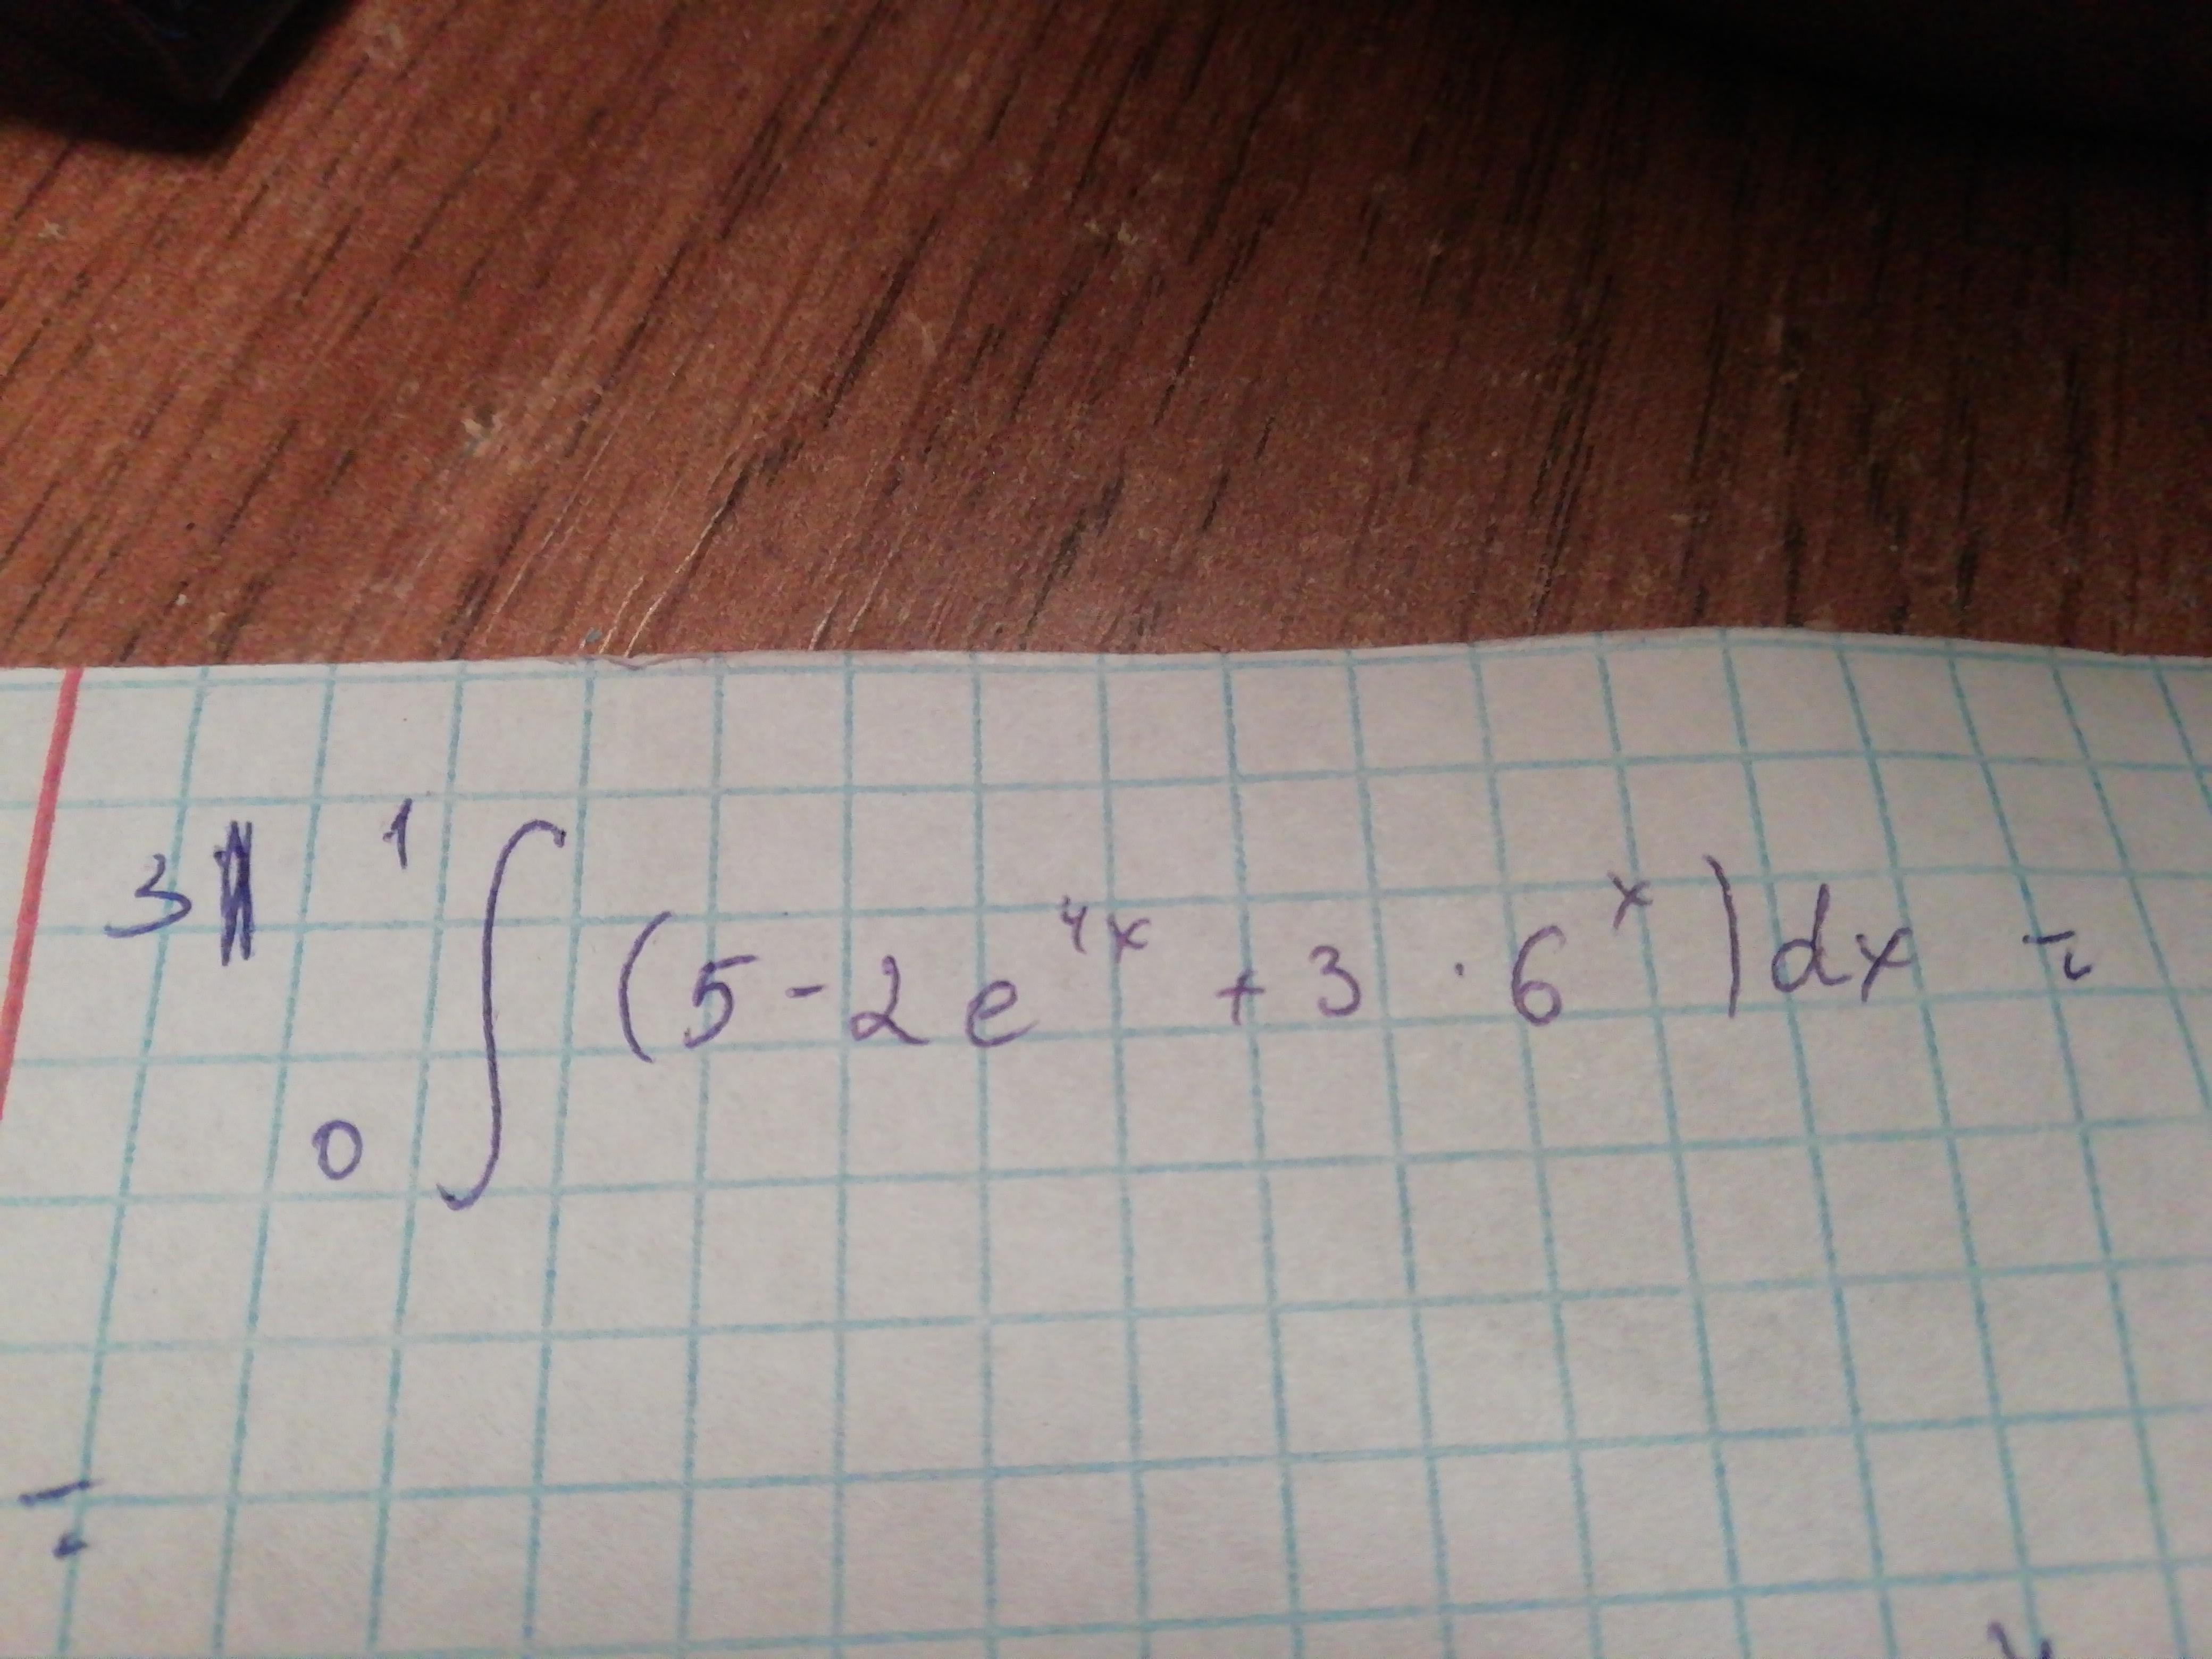 3 ¹₀∫ (5 - 2e⁴ˣ + 3 · 6ˣ) dx =
=